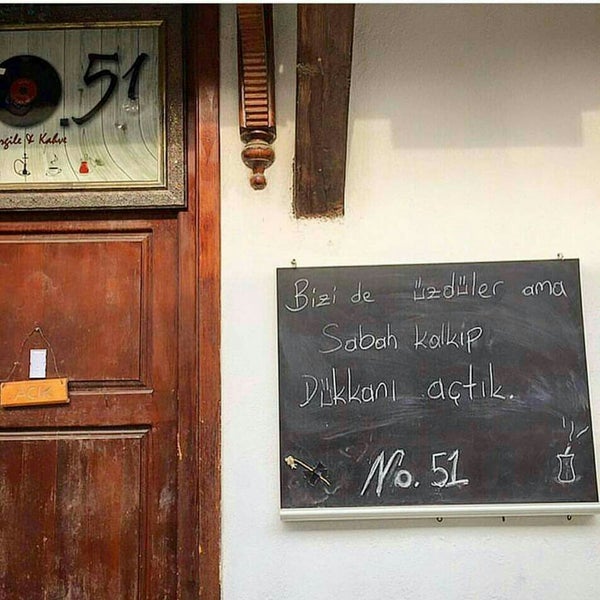 .51
rgile & Kahve
AÇIK
Bizi de üzdüler ama
Sabah kalkıp
Dükkanı açtık.
No. 51